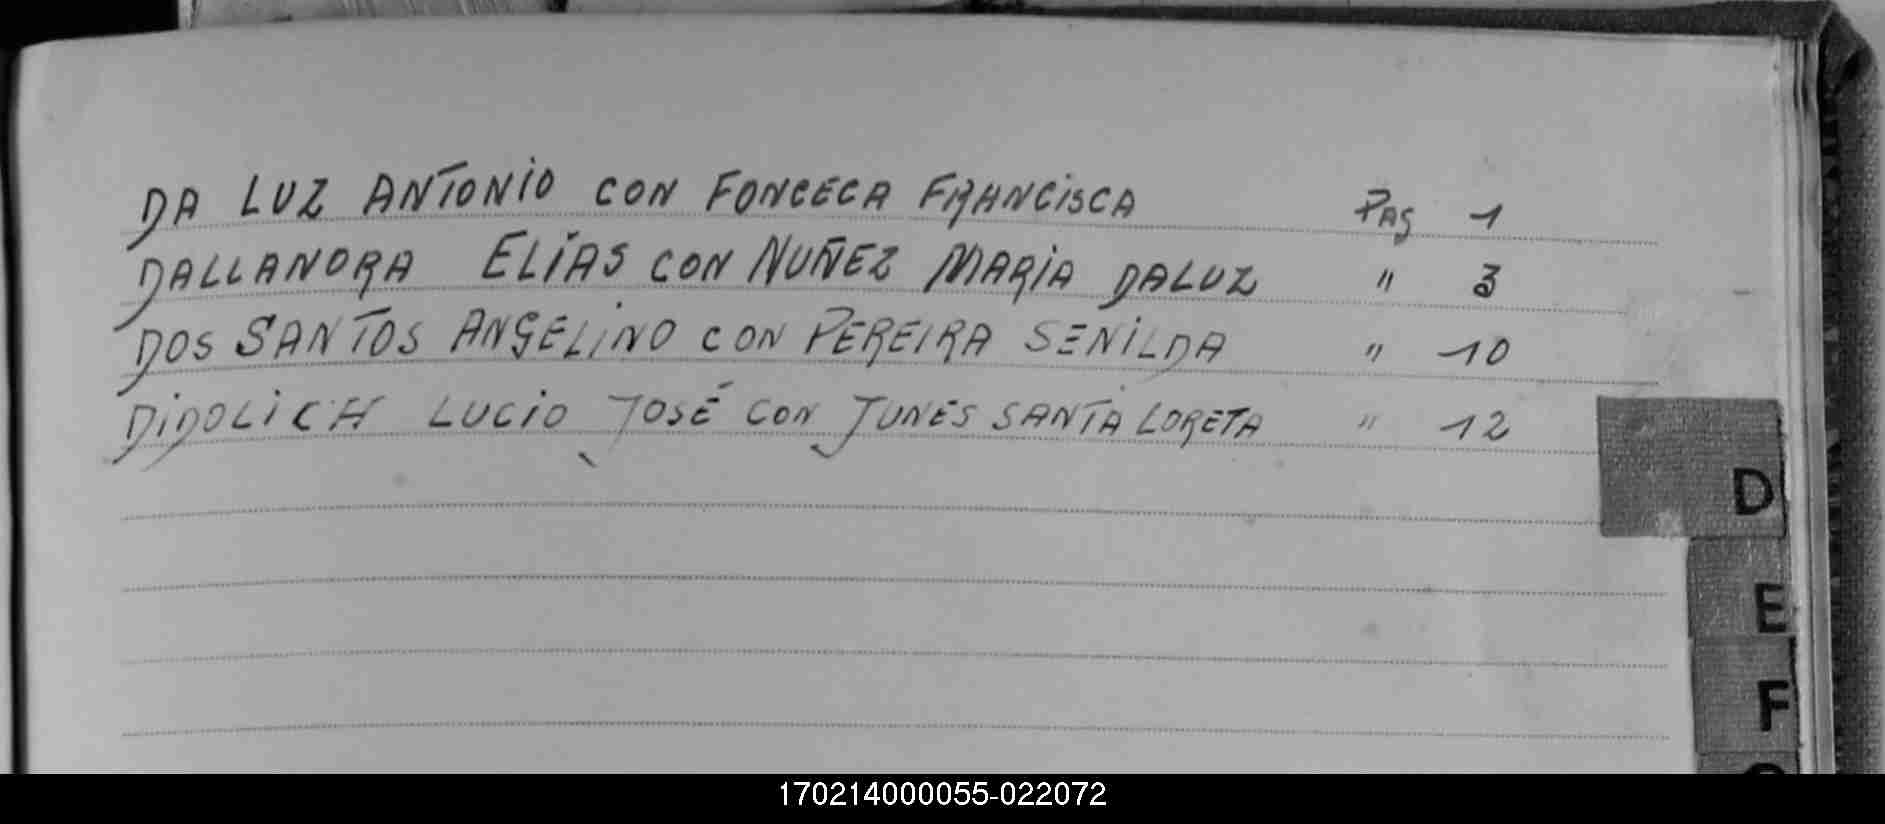 DA LUZ ANTONIO CON FONCECA FRANCISCA PAG 1
DALLANORA ELÍAS CON NUÑEZ MARIA DALUZ " 3
DOS SANTOS ANGELINO CON PEREIRA SENILDA " 10
DIDOLICH LUCIO JOSÉ CON JUNES SANTA LORETA " 12
D
E
F
170214000055-022072